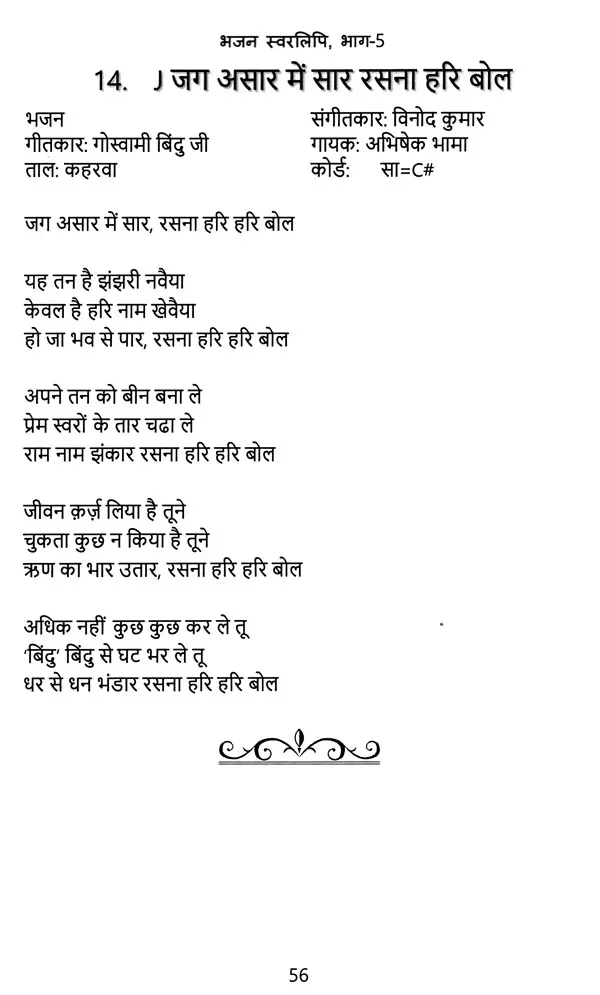 भजन स्वरलिपि, भाग-5
14. J जग असार में सार रसना हरि बोल
भजन
संगीतकार: विनोद कुमार
गीतकार: गोस्वामी बिंदु जी
गायक: अभिषेक भामा
ताल: कहरवा
कोर्ड: सा=C#
जग असार में सार, रसना हरि हरि बोल
यह तन है झंझरी नवैया
केवल है हरि नाम खेवैया
हो जा भव से पार, रसना हरि हरि बोल
अपने तन को बीन बना ले
प्रेम स्वरों के तार चढा ले
राम नाम झंकार रसना हरि हरि बोल
जीवन क़र्ज़ लिया है तूने
चुकता कुछ न किया है तूने
ऋण का भार उतार, रसना हरि हरि बोल
अधिक नहीं कुछ कुछ कर ले तू
‘बिंदु’ बिंदु से घट भर ले तू
धर से धन भंडार रसना हरि हरि बोल
56